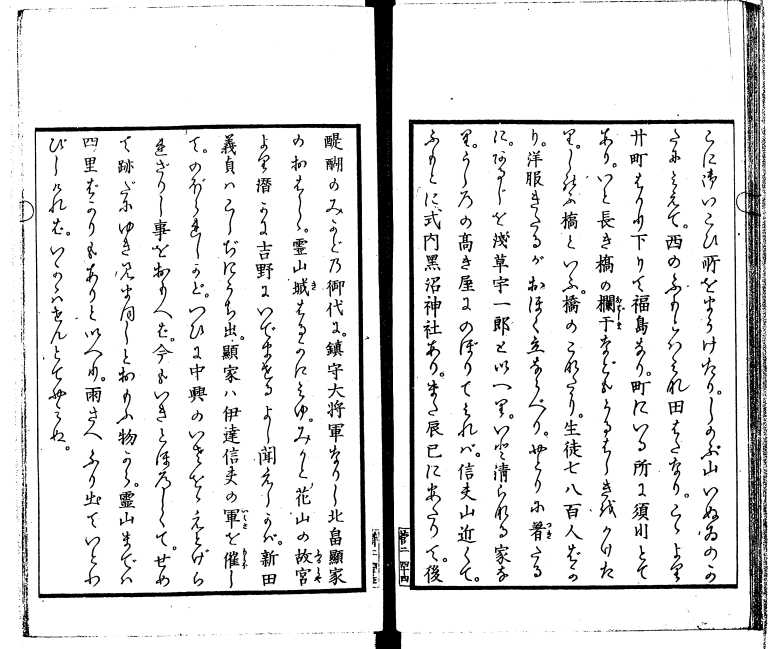 こに清いこひ所をまうけたり。しのぶ山いぬゐのか
たにみえて。西のふもとは田はたなり。こゝより
廿町ばかり下りて福島なり。町にいる所に須川とて
あり。いと長き橋の欄干などもうるはしきをかけた
り。しのぶ橋といふ。橋のこなたより。生徒七八百人ばか
り。洋服きたるがおほく立ならべり。やどりに着たる
に。あるじを浅草宇一郎といへり。いと清らなる家な
り。うしろの高き屋にのぼりてみれば。信夫山近くて。
ふもとに式内黒沼神社あり。また辰巳にあたりて。後
巻二 四十四
醍醐のみかどの御代に。鎮守大将軍なりし北畠顕家
のおはしし。霊山城はるかにみゆ。みかど花山の故宮
より潜かに吉野にいでませるよし聞えしかば。新田
義貞ハこしぢにうち出。顕家ハ伊達信夫の軍を催し
て。のぼられしかど。つひに中興のいさをゝえとげら
れざりし事をおもへば。今もいきどほろしくて。せめ
て跡だにゆき見まほしとおもふ物から。霊山までハ
四里ばかりもありといへり。雨さへふり出ていとわ
びしければ。いかゞはせんとてやみぬ。